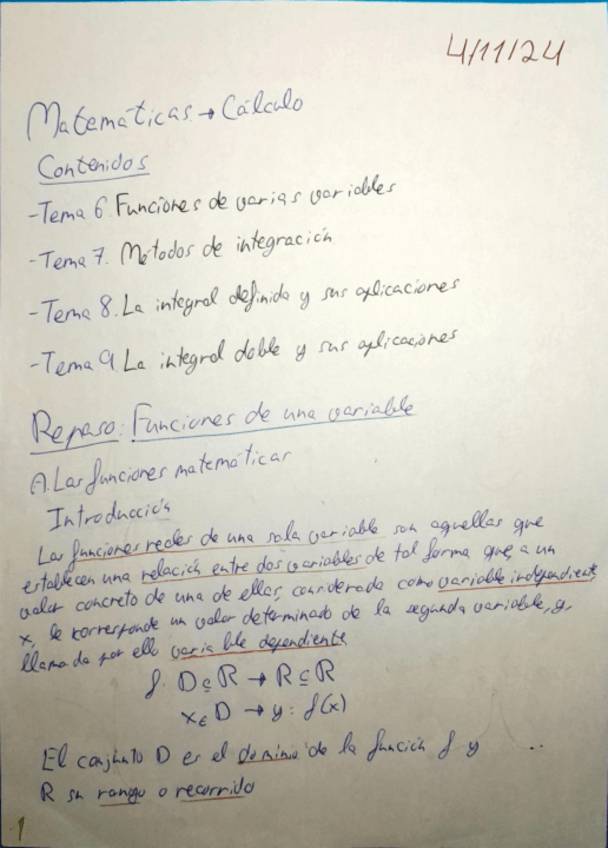 4/11/24
Matemáticas → Cálculo
Contenidos
-Tema 6. Funciones de varias variables
-Tema 7. Métodos de integración
-Tema 8. La integral definida y sus aplicaciones
-Tema 9. La integral doble y sus aplicaciones
Repaso: Funciones de una variable
A. Las funciones matemáticas
Introducción
Las funciones reales de una sola variable son aquellas que
establecen una relación entre dos variables de tal forma que, a un
valor concreto de una de ellas, considerada como variable independiente,
x, le corresponde un valor determinado de la segunda variable, y,
llamada por ello variable dependiente
f: D ⊆ ℝ → R ⊆ ℝ
x ∈ D → y = f(x)
El conjunto D es el dominio de la función f y
R su rango o recorrido
1